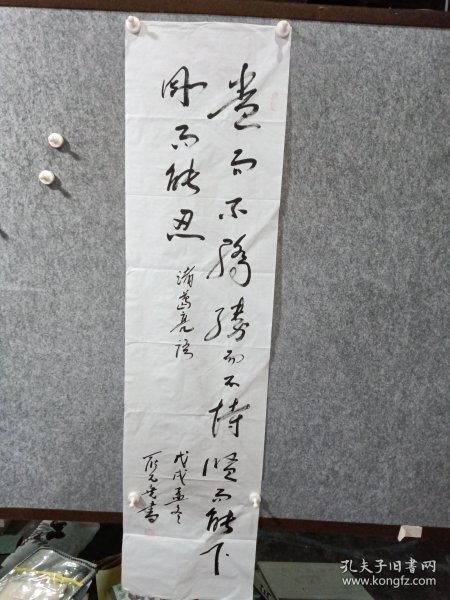 贵而不骄胜而不恃贤而能下
刚而能忍
诸葛亮语
戊戌孟冬
书
孔夫子旧书网
www.kongfz.com